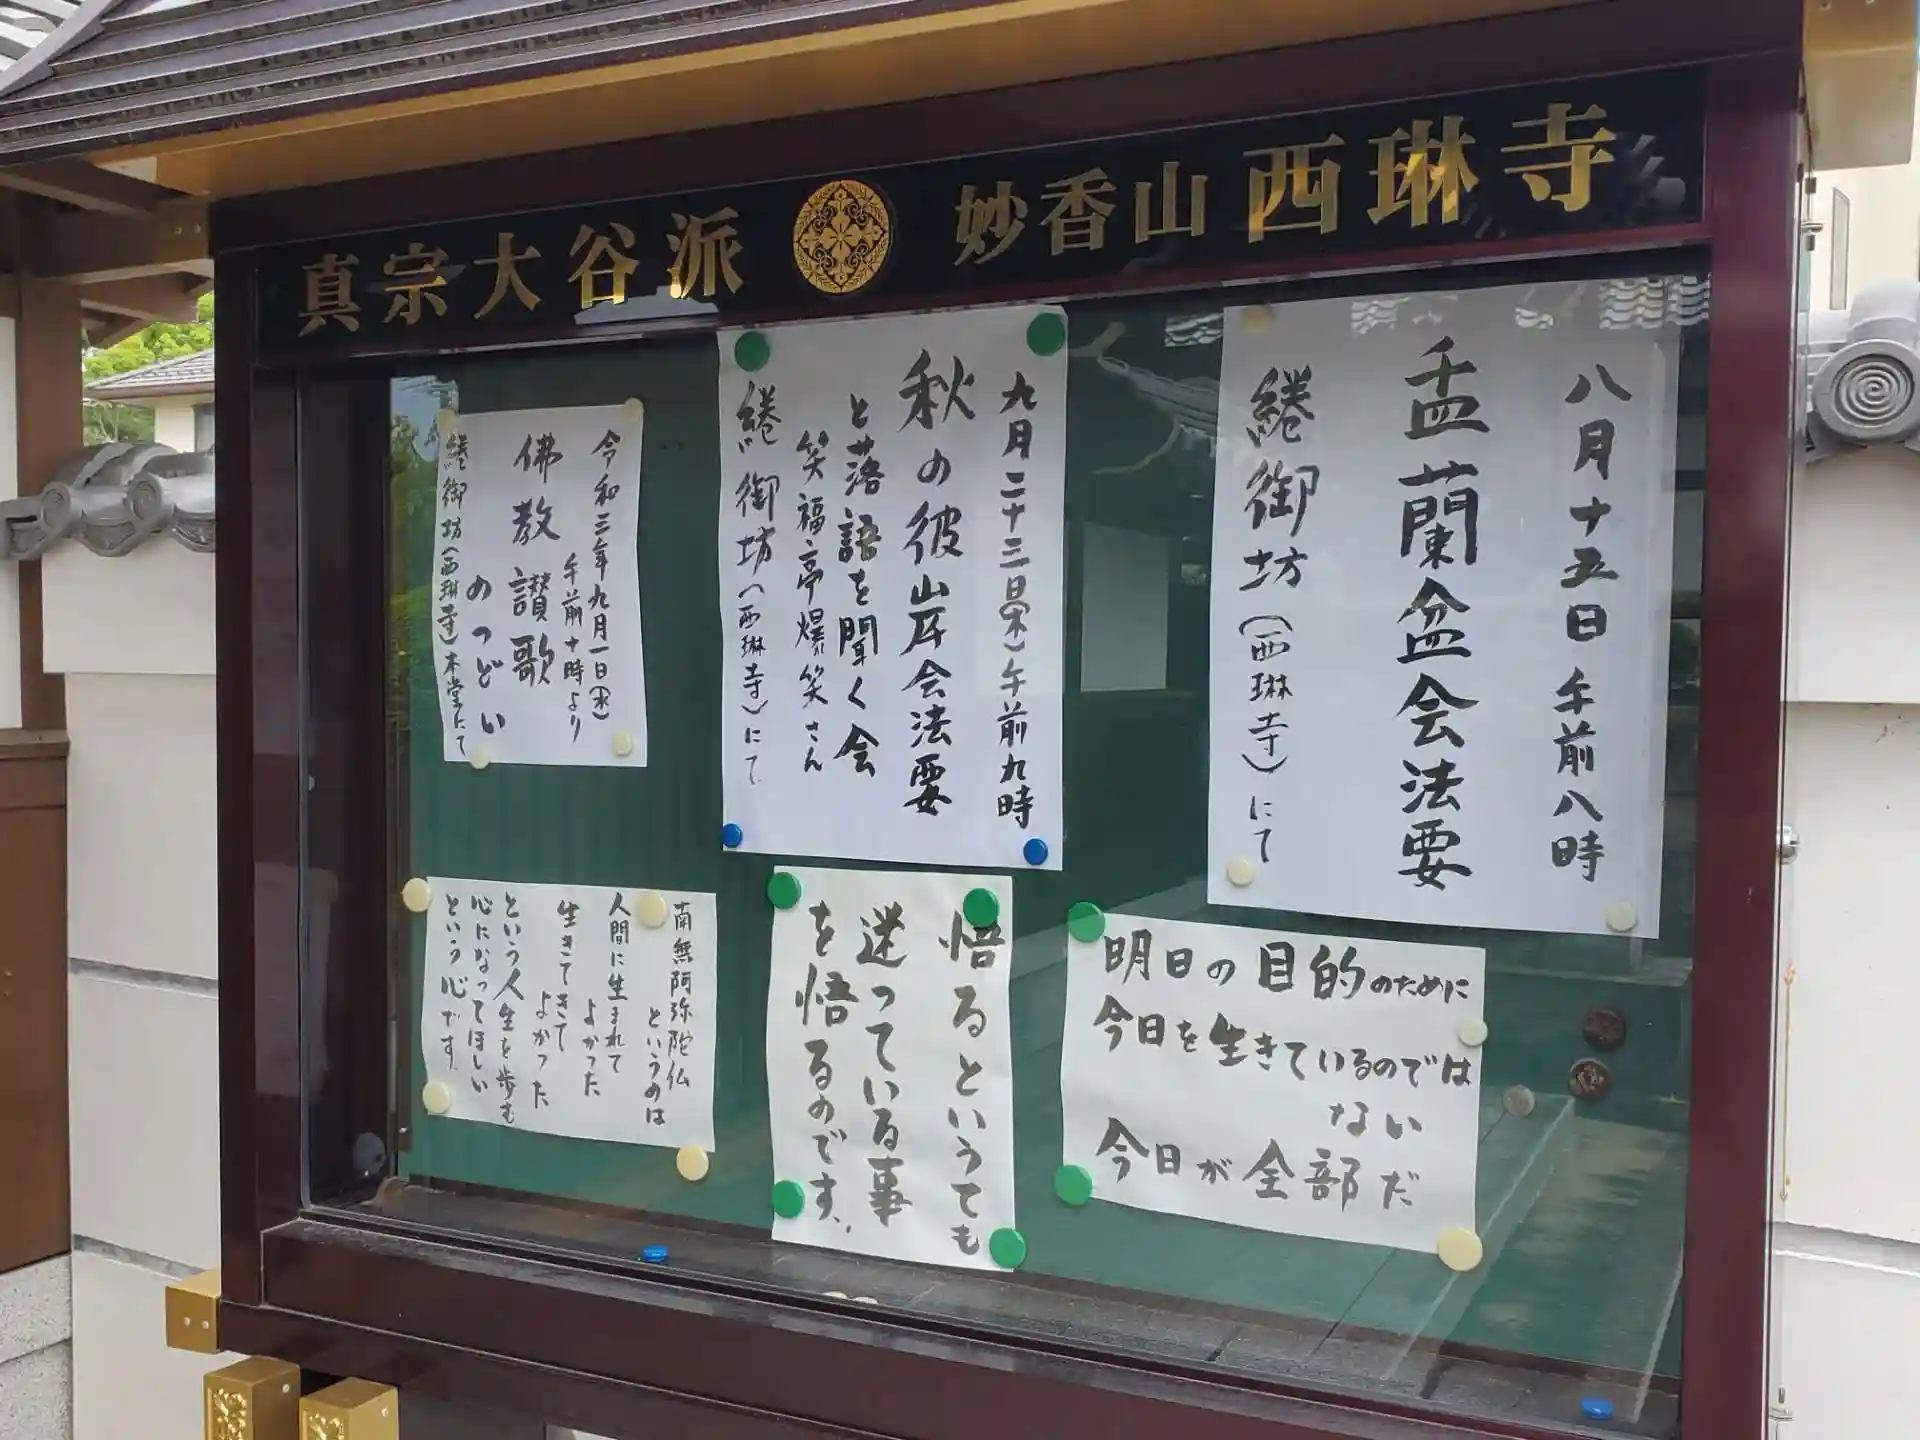 真宗大谷派 妙香山 西琳寺
八月十五日 午前八時
盂蘭盆会法要
綣御坊(西琳寺)にて
九月二十三日(木)午前九時
秋の彼岸会法要
と落語を聞く会
笑福亭爆笑さん
綣御坊(西琳寺)にて
令和三年九月一日(水)
午前十時より
佛教讃歌
のつどい
綣御坊(西琳寺)本堂にて
明日の目的のために
今日を生きているのでは
ない
今日が全部だ
悟るといっても
迷っている事
を悟るのです。
南無阿弥陀仏
というのは
人間に生まれて
よかった
生きてきて
よかった
という人生を歩む
心になってほしい
という心です。